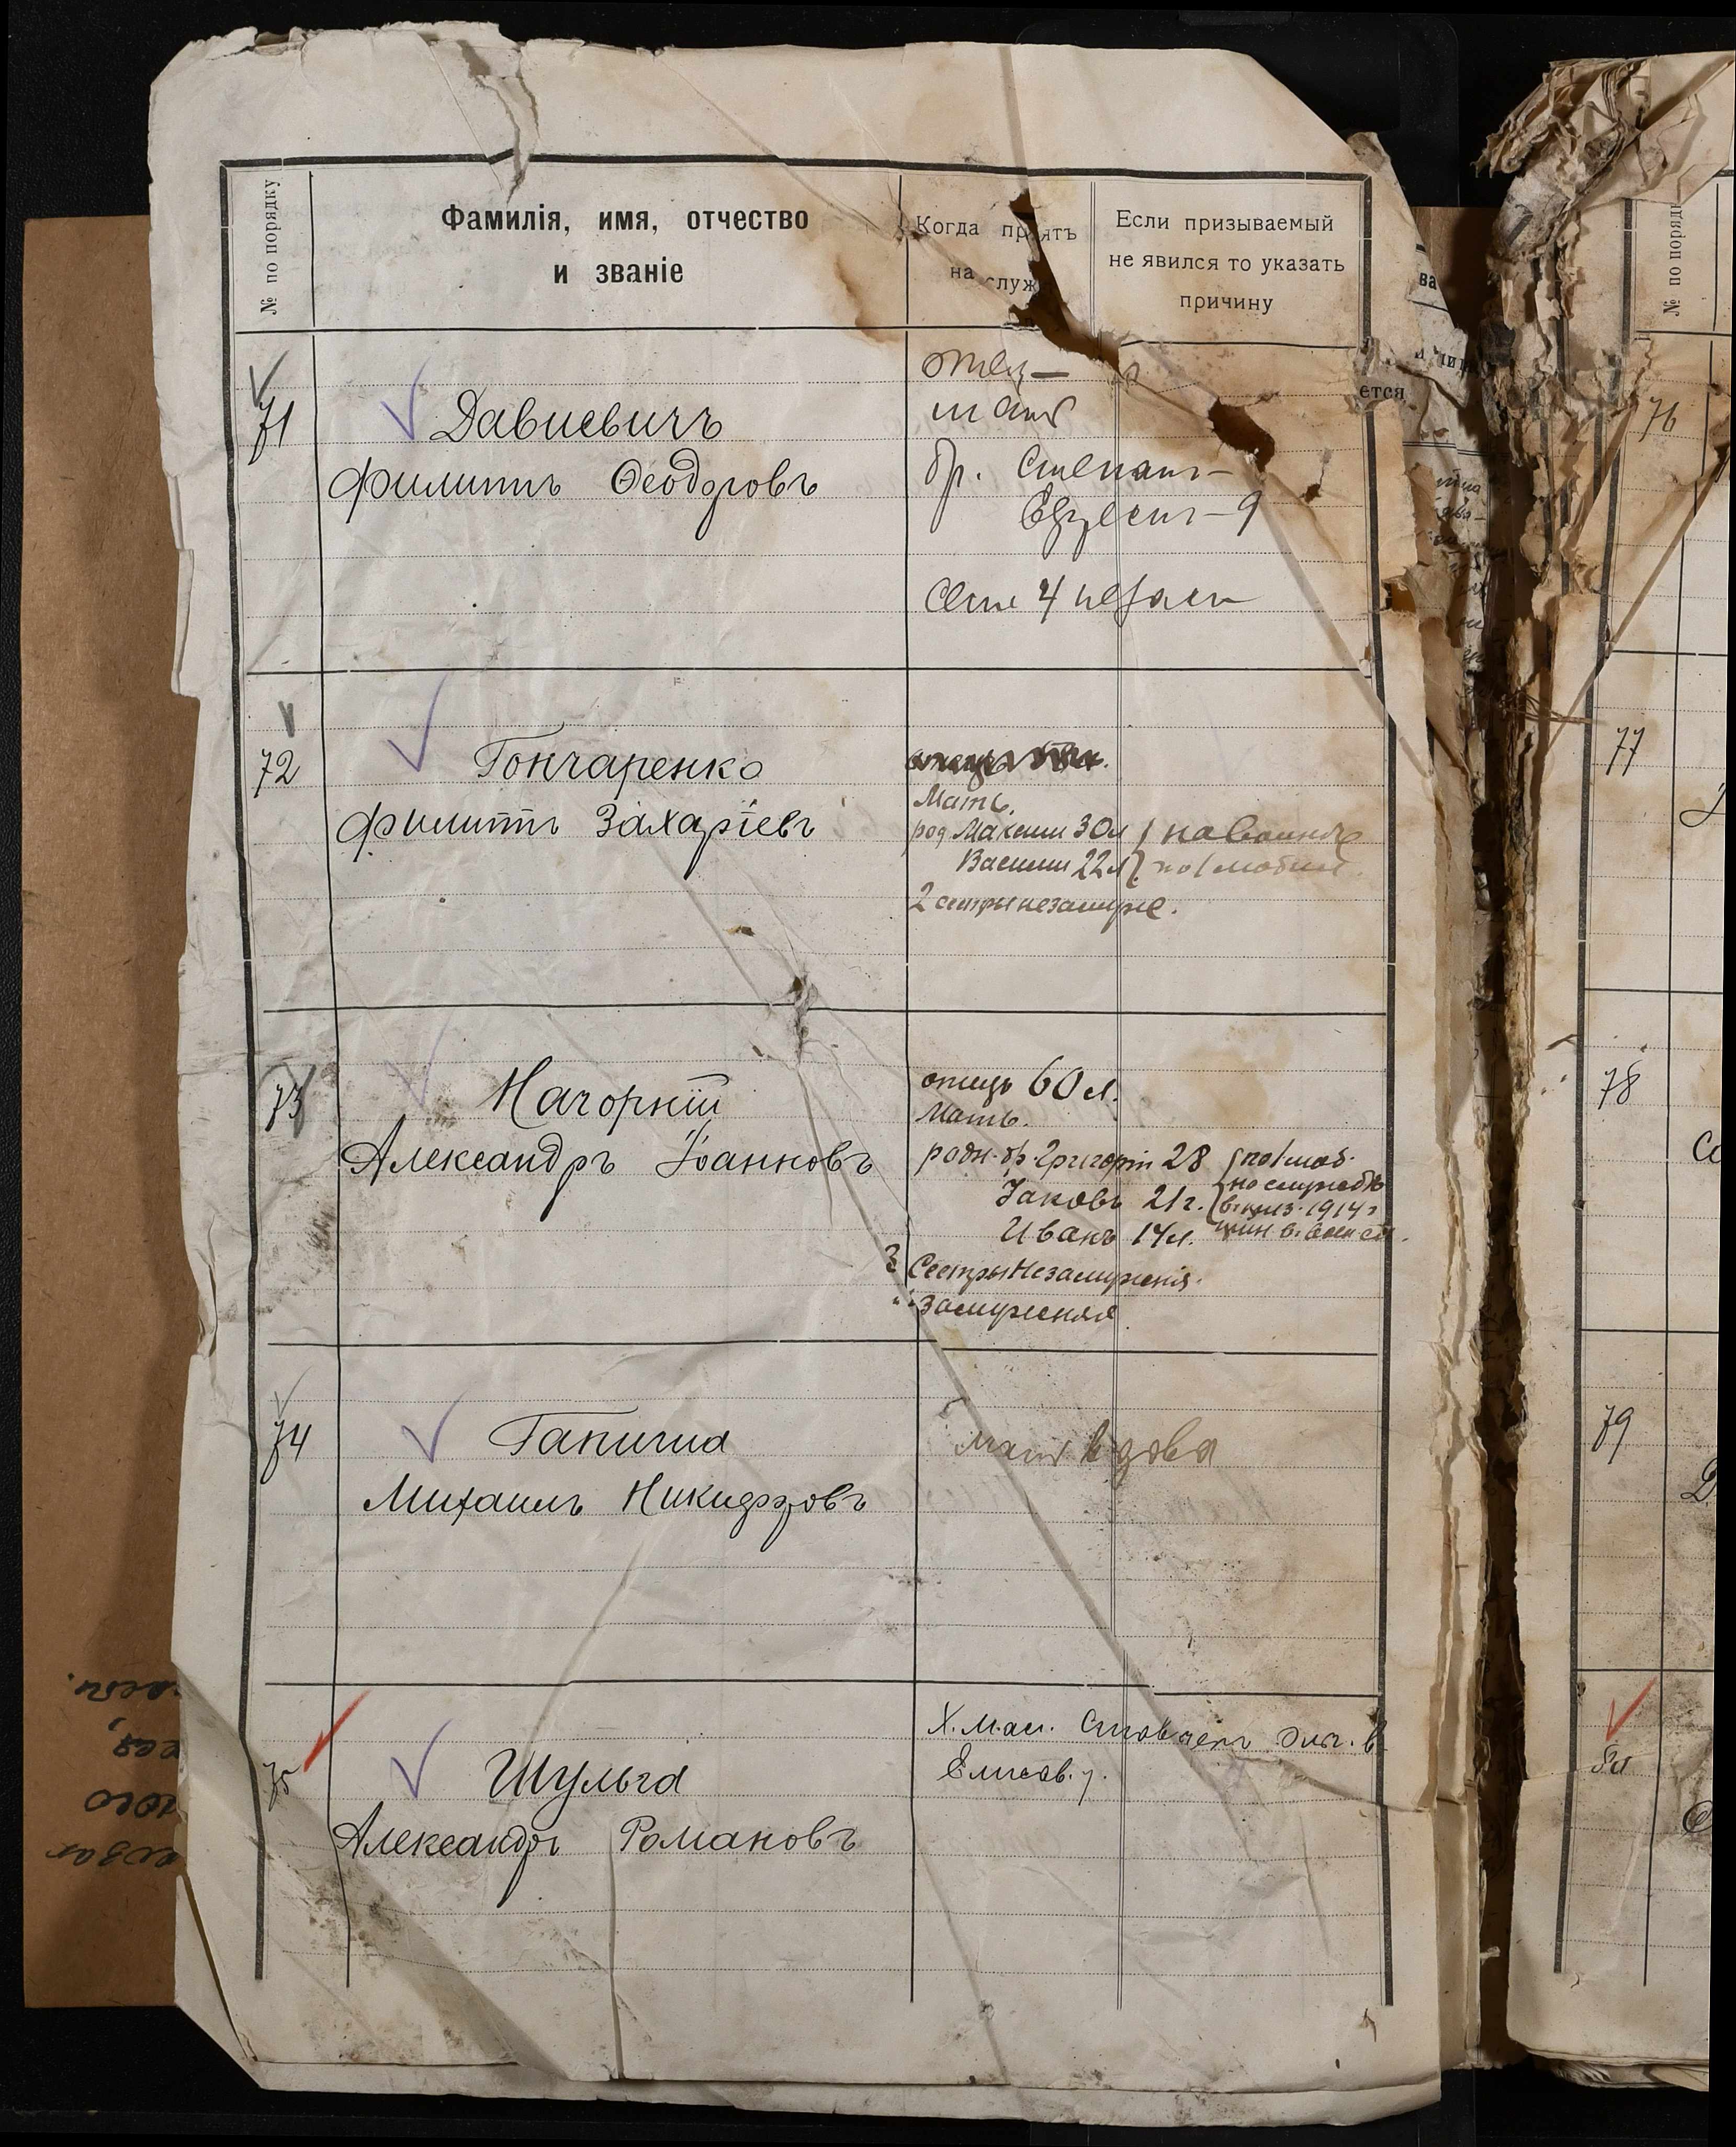 № по порядку
Фамилія, имя, отчество
и званіе
Когда пр ятъ
на служ
Если призываемый
не явился то указать
причину
71
Давиевичъ
Филиппъ Ѳеодоровъ
отец —
мать
бр. Степанъ —
— 9
72
Гончаренко
Филиппъ Захаріевъ
Мать.
род Максим 30 л
Васили 22 л
на войнѣ
по/мобил.
2 сестры незамуже.
73
Нагорній
Александръ Іоанновъ
отецъ 60 л.
Мать.
родн. бр. Григорій 28
по/моб.
Іаковъ 21 г.
на службѣ
в. приз. 1914 г
Иванъ 14 л.
3 Сестры Незамужнія.
" Замужняя
74
Ганичла
Михаилъ Никифоровъ
мать вдова
75
Шульга
Александръ Романовъ
Елисав. у.
№ по поряд
76
77
78
79
80
ется